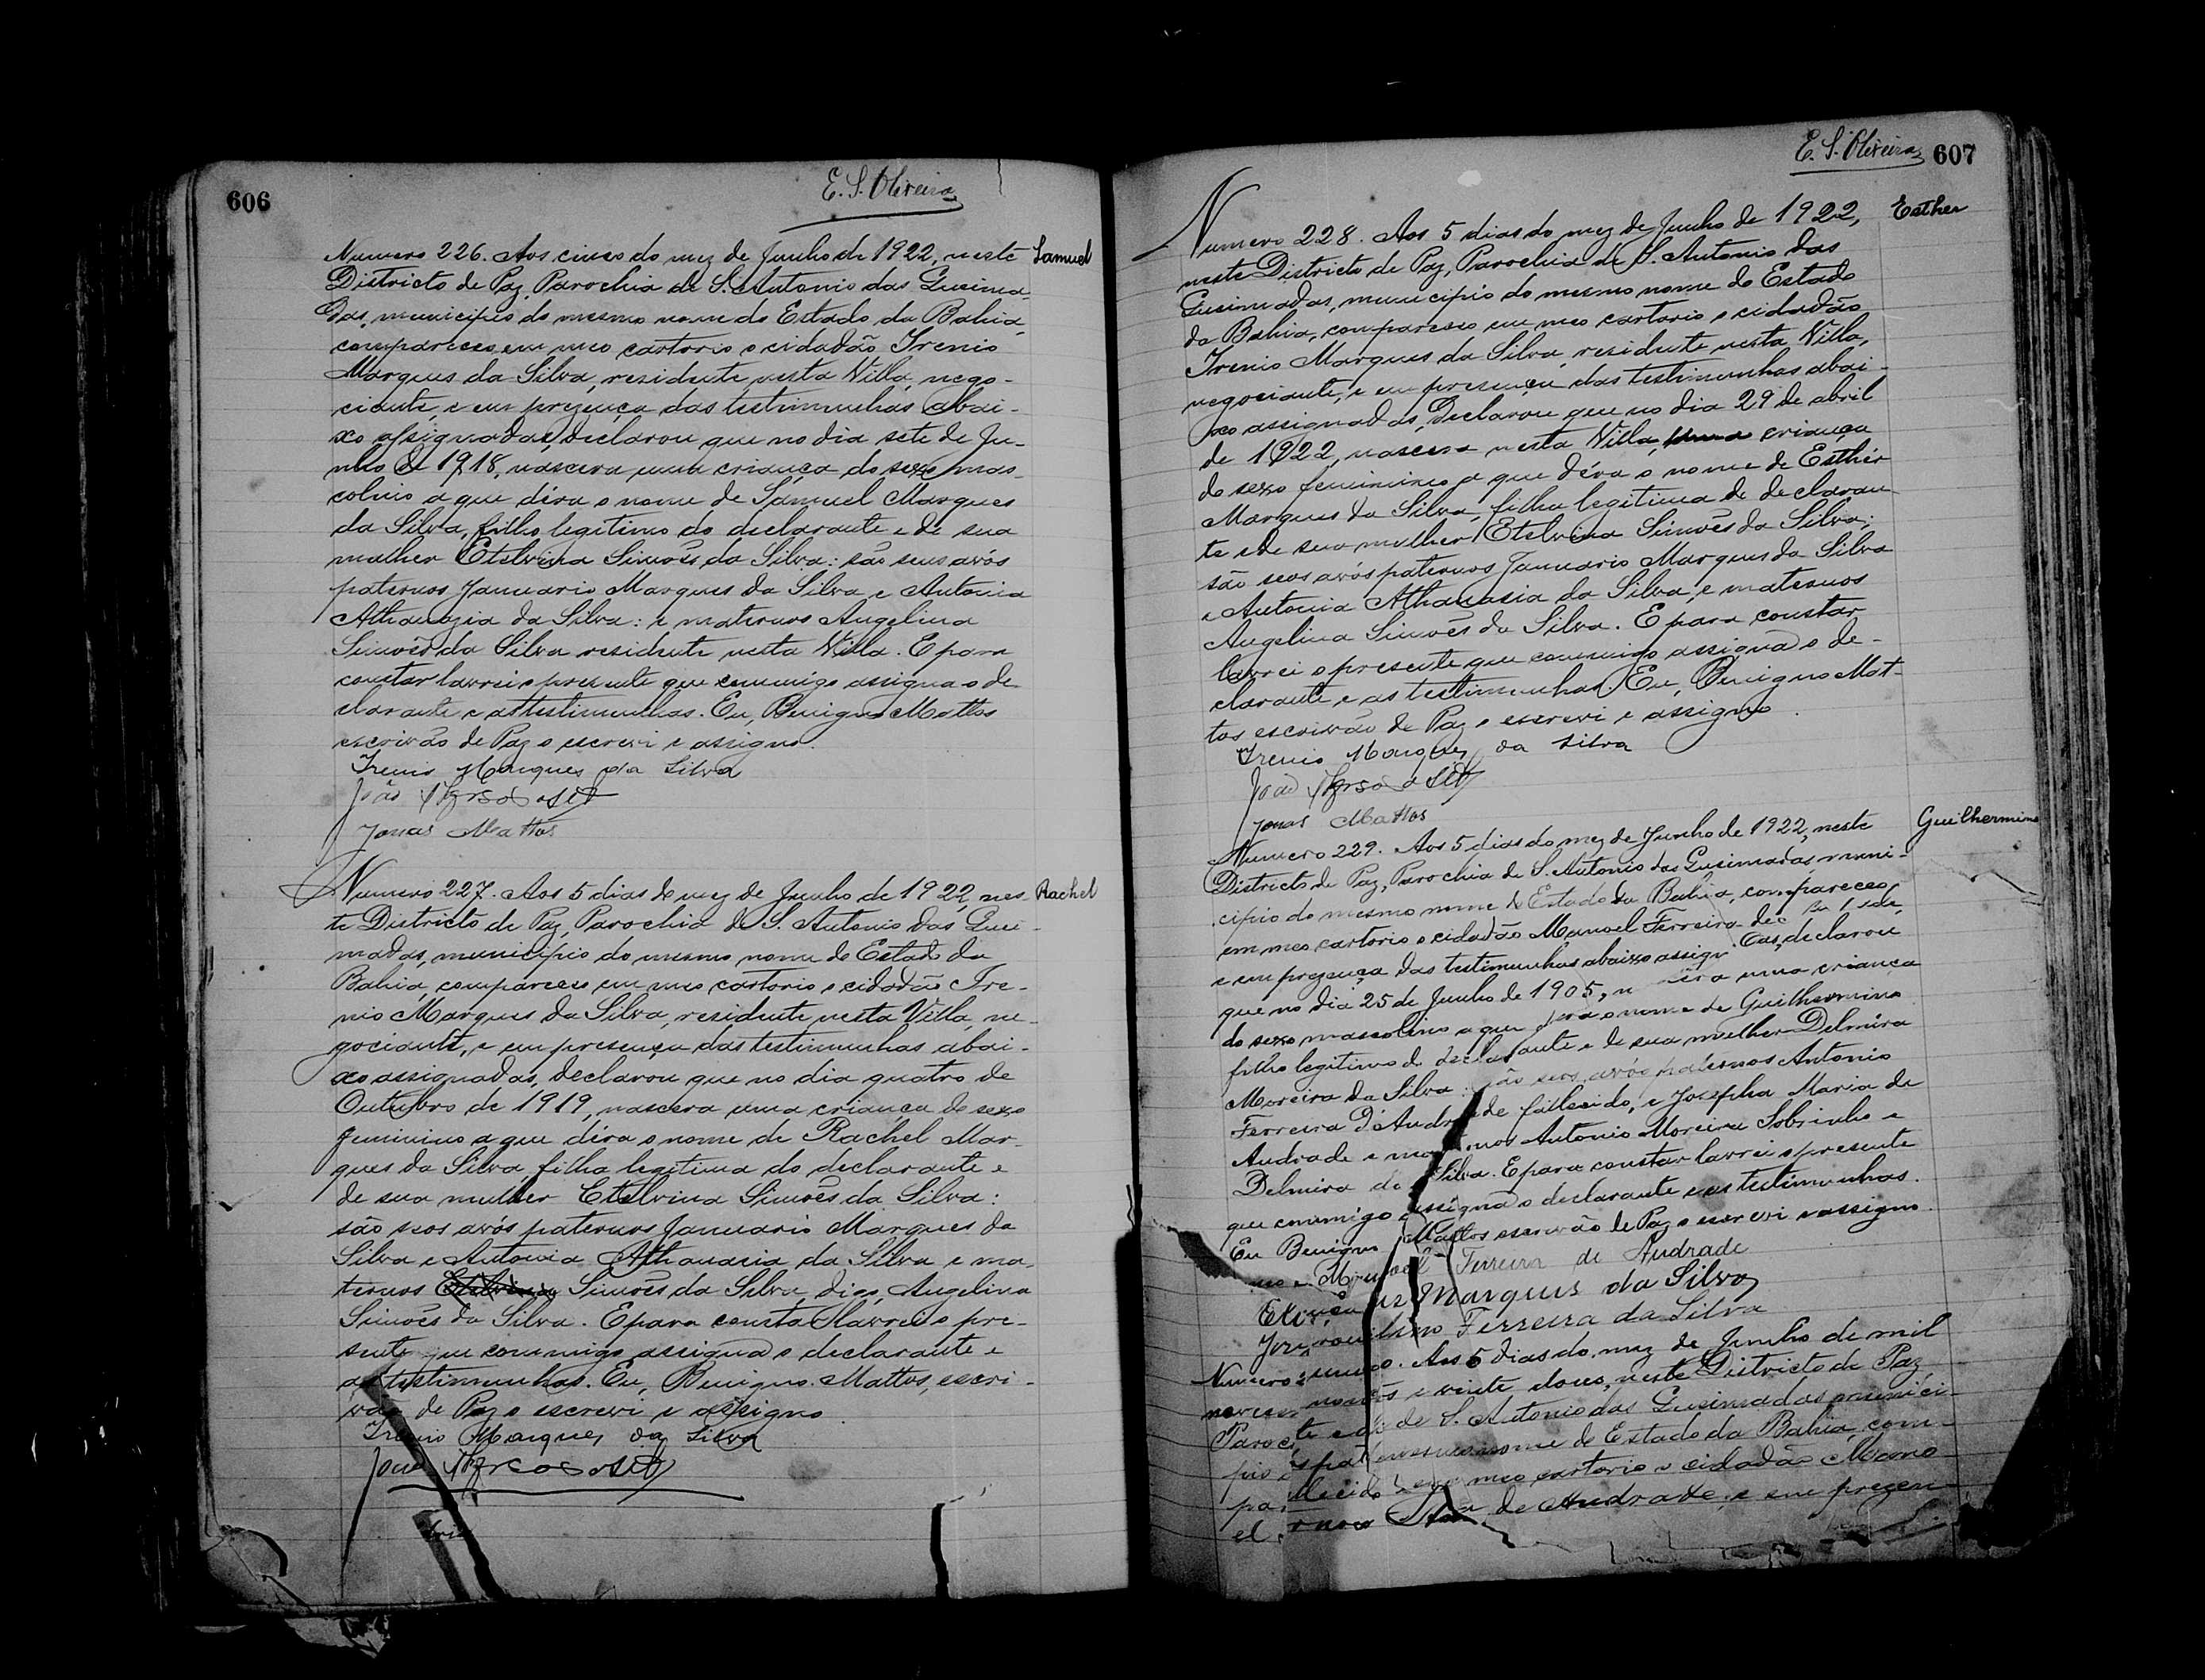 606
E. S. Oliveira
Numero 226. Aos cinco do mez de Junho de 1922, neste
Samuel
Districto de Paz, Parochia de S. Antonio das Queima-
das, municipio do mesmo nome do Estado da Bahia,
compareceo em meo cartorio o cidadão Irenio
Marques da Silva, residente nesta Villa, nego-
ciante, e em prezença das testimunhas abai-
xo assignadas, declarou que no dia sete de Ju-
nho de 1918, nascera uma criança do sexo mas-
colino a que déra o nome de Samuel Marques
da Silva, filho legitimo do declarante e de sua
mulher Etelvina Simões da Silva: são seus avós
paternos Januario Marques da Silva e Antonia
Athanazia da Silva: e maternos Angelina
Simões da Silva residente nesta Villa. E para
constar lavrei o presente que commigo assigna o de-
clarante e as testimunhas. Eu, Benigno Mattos
escrivão de Paz o escrevi e assigno.
Irenio Marques da Silva
João
Jonas Mattos
Numero 227. Aos 5 dias do mez de Junho de 1922, nes-
Rachel
te Districto de Paz, Parochia de S. Antonio das Quei-
madas, municipio do mesmo nome do Estado da
Bahia, compareceo em meo cartorio o cidadão Ire-
nio Marques da Silva, residente nesta Villa, ne-
gociante, e em presença das testimunhas abai-
xo assignadas, declarou que no dia quatro de
Outubro de 1919, nascera uma criança do sexo
feminino a que déra o nome de Rachel Mar-
ques da Silva filha legitima do declarante e
de sua mulher Etelvina Simões da Silva:
são seos avós paternos Januario Marques da
Silva e Antonia Athanasia da Silva e ma-
ternos Etelvina Simões da Silva digo, Angelina
Simões da Silva. E para consta lavrei o pre-
sente que commigo assigna o declarante e
as testimunhas. Eu, Benigno Mattos, escri-
vão de Paz o escrevi e assigno.
Irenio Marques da Silva
João
E. S. Oliveira
607
Numero 228. Aos 5 dias do mez de Junho de 1922,
Esther
neste Districto de Paz, Parochia de S. Antonio das
Queimadas, municipio do mesmo nome do Estado
da Bahia, compareceo em meo cartorio o cidadão
Irenio Marques da Silva, residente nesta Villa,
negociante, e em presença das testimunhas abai-
xo assignadas, declarou que no dia 29 de abril
de 1922, nascera nesta Villa, uma criança
do sexo feminino a que déra o nome de Esthér
Marques da Silva, filha legitima do declaran-
te e de sua mulher Etelvina Simões da Silva;
são seos avós paternos Januario Marques da Silva
e Antonia Athanasia da Silva, e maternos
Angelina Simões da Silva. E para constar
lavrei o presente que commigo assigna o de-
clarante e as testimunhas. Eu, Benigno Mat-
tos escrivão de Paz o escrevi e assigno.
Irenio Marques da Silva
João
Jonas Mattos
Numero 229. Aos 5 dias do mez de Junho de 1922, neste
Guilhermino
Districto de Paz, Parochia de S. Antonio das Queimadas, muni-
cipio do mesmo nome do Estado da Bahia, compareceo
em meo cartorio o cidadão Manoel Ferreira de
e em prezença das testimunhas abaixo declarou
que no dia 25 de Junho de 1905, uma criança
do sexo mascolino a que dera o nome de Guilhermino
filho legitimo do declarante e de sua mulher Delmira
Moreira da Silva: são seos avós paternos Antonio
Ferreira d'Andrade fallecido, e Josepha Maria de
Andrade e maternos Antonio Moreira Sobrinho e
Delmira da Silva. E para constar lavrei o presente
que commigo assigna o declarante e as testimunhas.
Eu Benigno Mattos escrivão de Paz o escrevi e assigno.
Manoel Ferreira de Andrade
Marques da Silva
Ferreira da Silva
Numero Aos 5 dias do mez de Junho de mil
e vinte dous, neste Districto de Paz
de S. Antonio das Queimadas munici-
nome do Estado da Bahia, com-
meo cartorio o cidadão Mano-
el de Andrade, e em prezen-